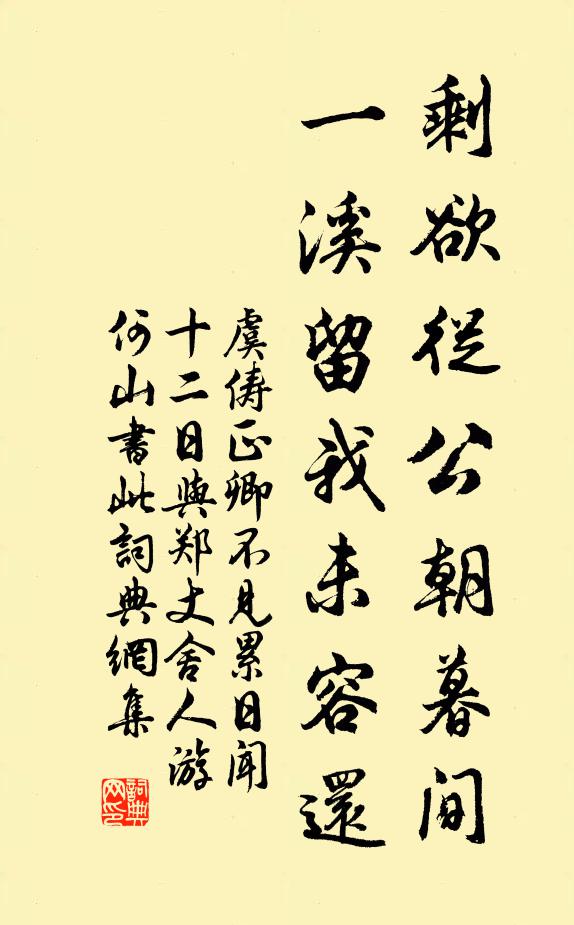 剩欲從公朝暮間
一溪留我未容還
虞儔正卿不見累日聞
十二日與郑丈舍人游
何山書此詞典網集
詞典网印